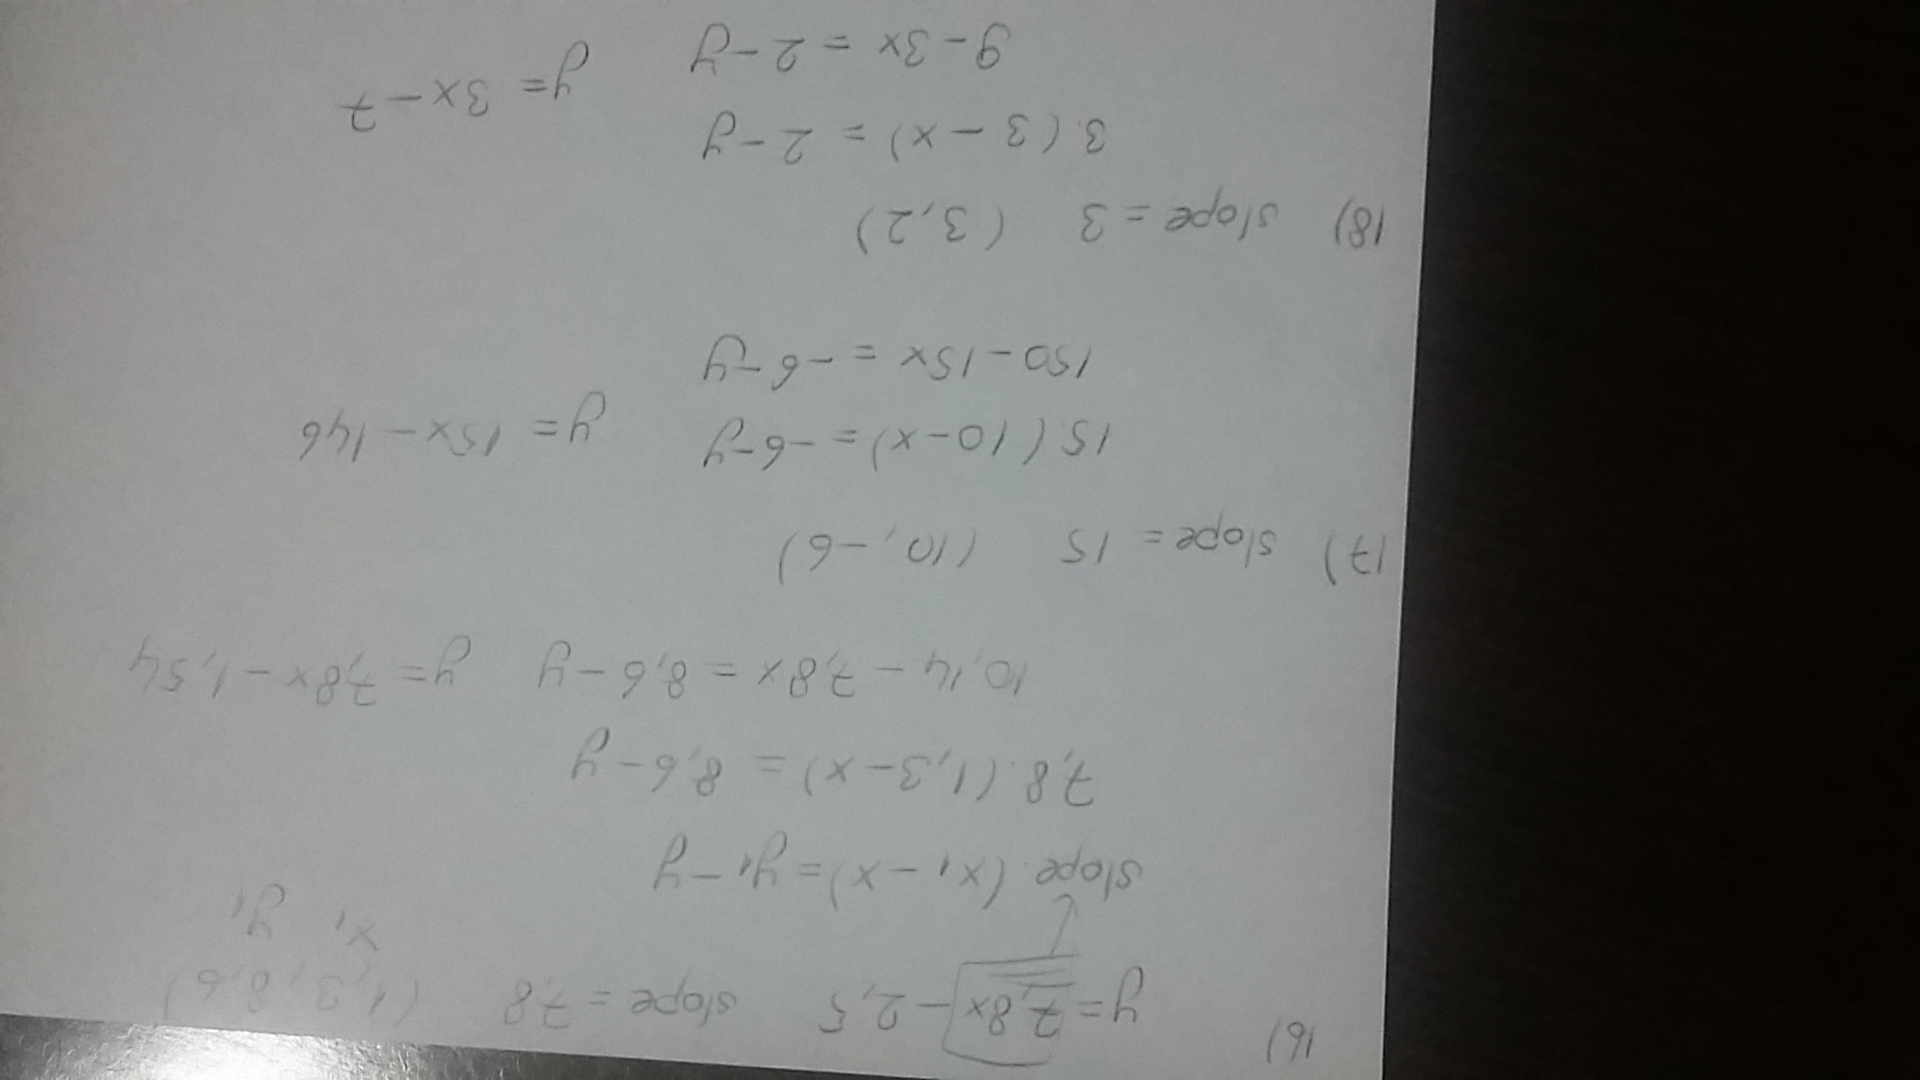 16) y = 7,8x - 2,5 slope = 7,8 (1,3, 8,6)
x1 y1
slope.(x1 - x) = y1 - y
7,8.(1,3 - x) = 8,6 - y
10,14 - 7,8x = 8,6 - y y = 7,8x - 1,54
17) slope = 15 (10, -6)
15.(10 - x) = -6 - y
y = 15x - 146
150 - 15x = -6 - y
18) slope = 3 (3, 2)
3.(3 - x) = 2 - y
y = 3x - 7
9 - 3x = 2 - y